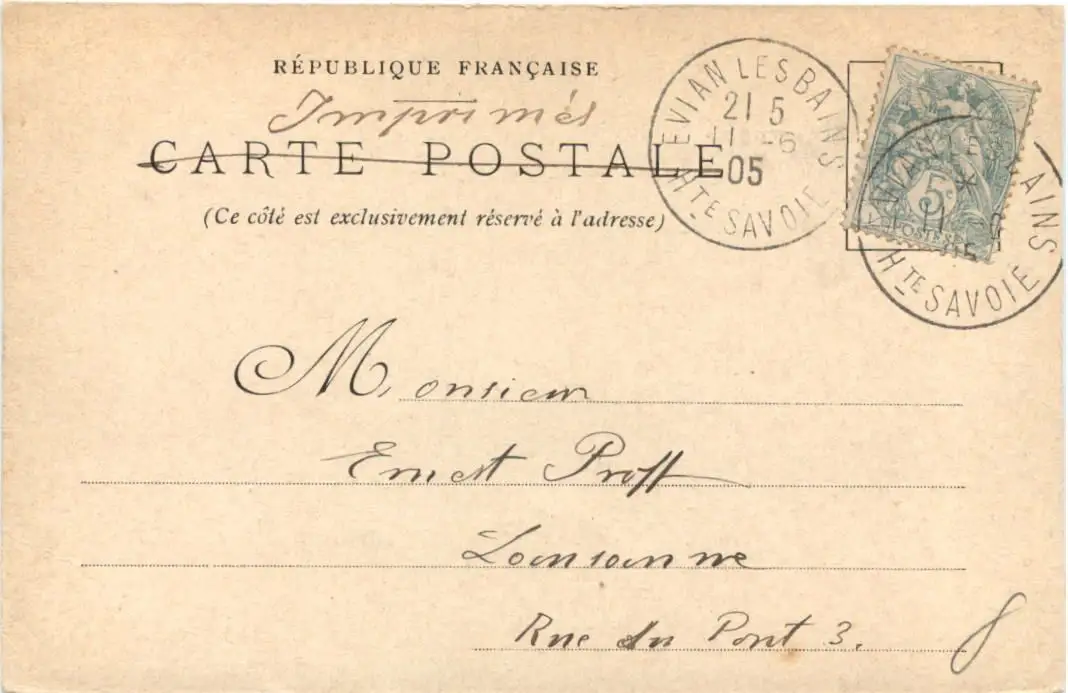 RÉPUBLIQUE FRANÇAISE
Imprimés
CARTE POSTALE
(Ce côté est exclusivement réservé à l'adresse)
EVIAN LES BAINS
21 5
11 -6
05
HTE SAVOIE
5c
POSTES
EVIAN LES BAINS
*
11 -6
05
HTE SAVOIE
Monsieur
Ernest Proff
Lausanne
Rue du Pont 3.